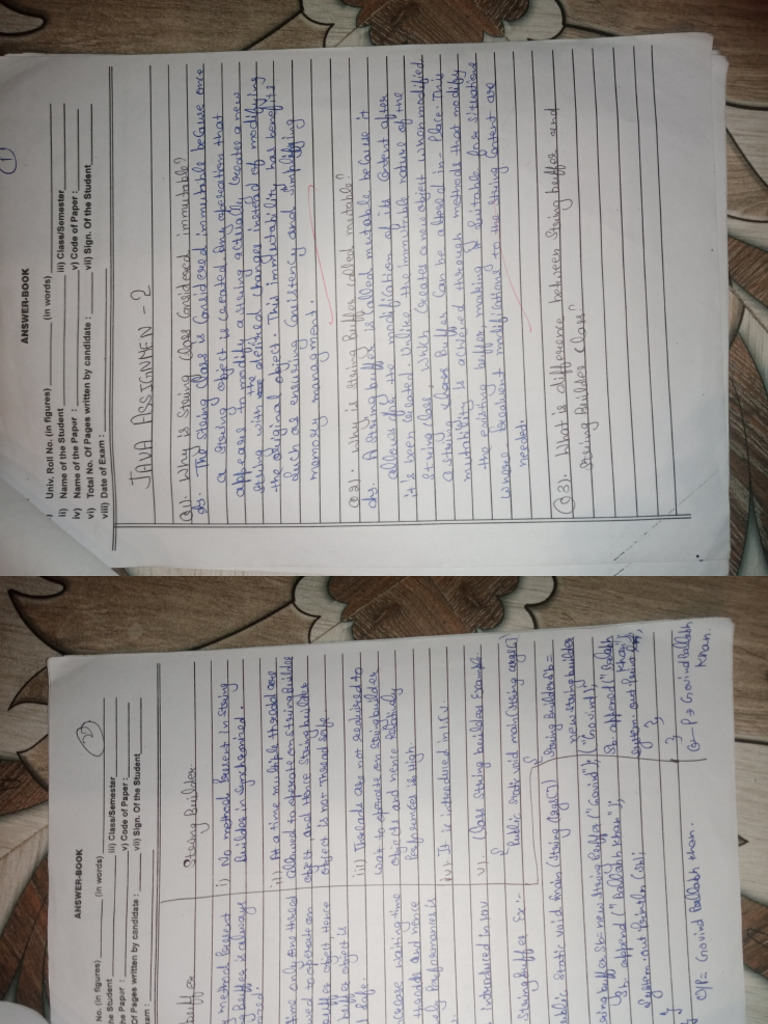 1
ANSWER-BOOK
i) Univ. Roll No. (in figures) (in words)
ii) Name of the Student iii) Class/Semester
iv) Name of the Paper : v) Code of Paper :
vi) Total No. Of Pages written by candidate : vii) Sign. Of the Student
viii) Date of Exam :
JAVA ASSIGNMEN - 2
Q1). Why is String class Considered immutable?
ds. The string class is Considered immutable because once
a string object is created Any operation that
appears to modify a string actually creates a new
string with desired changes instead of modifying
the original object. This immutability has benefits
such as ensuring Consistency and simplifying
memory managment.
Q2). Why is String Buffer called mutable?
ds. A String buffer is called mutable because it
allows for the modification of its Content after
it's been created. Unlike the immutable nature of the
String class, which Creates a new object when modified
a string Buffer Can be altered in-Place. This
mutability is achieved through methods that modify
the existing buffer, making it Suitable for Situations
where frequent modifications to the String Content are
needed.
Q3). What is difference between String buffer and
String Builder Class?
2
ANSWER-BOOK
No. (in figures) (in words)
he Student iii) Class/Semester
he Paper : v) Code of Paper :
Of Pages written by candidate : vii) Sign. Of the Student
xam :
buffer String Builder
method Present i) No method Present in String
Buffer is always Builder in Synchronized.
time only one thread ii) At a time multiple thread are
wed to operate on allowed to operate on String Builder
buffer object. Hence object and Hence String builder
buffer object is object is not Thread Safe.
Safe.
iii) Threads are not required to
crease waiting time wait to operate on String builder
threads and hence objects and hence Relatively
ly Performances is Performances is High.
introduced in 1.0v iv) It is introduced in 1.5v.
String Buffer Ex :- v) Class String builder Example-
Public static void main(String args[])
Public static void main (String args[]) String Builder sb =
new String builder
String buffer sb= new String Buffer ("Govind"); ("Govind");
Sb. append (" Ballabh Khan"); Sb. append (" Ballabh
Khan");
System.out.Println (sb); System.out.Println (sb);
} }
} }
O/P= Govind Ballabh Khan. O-P → Govind Ballabh
Khan.